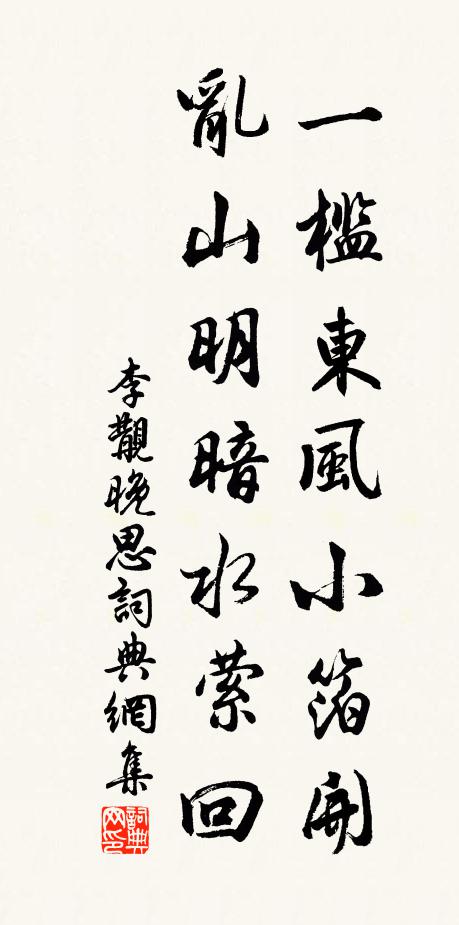 一檻東風小箔開
亂山明暗水萦回
李覯晚思詞典網集
詞典
网印